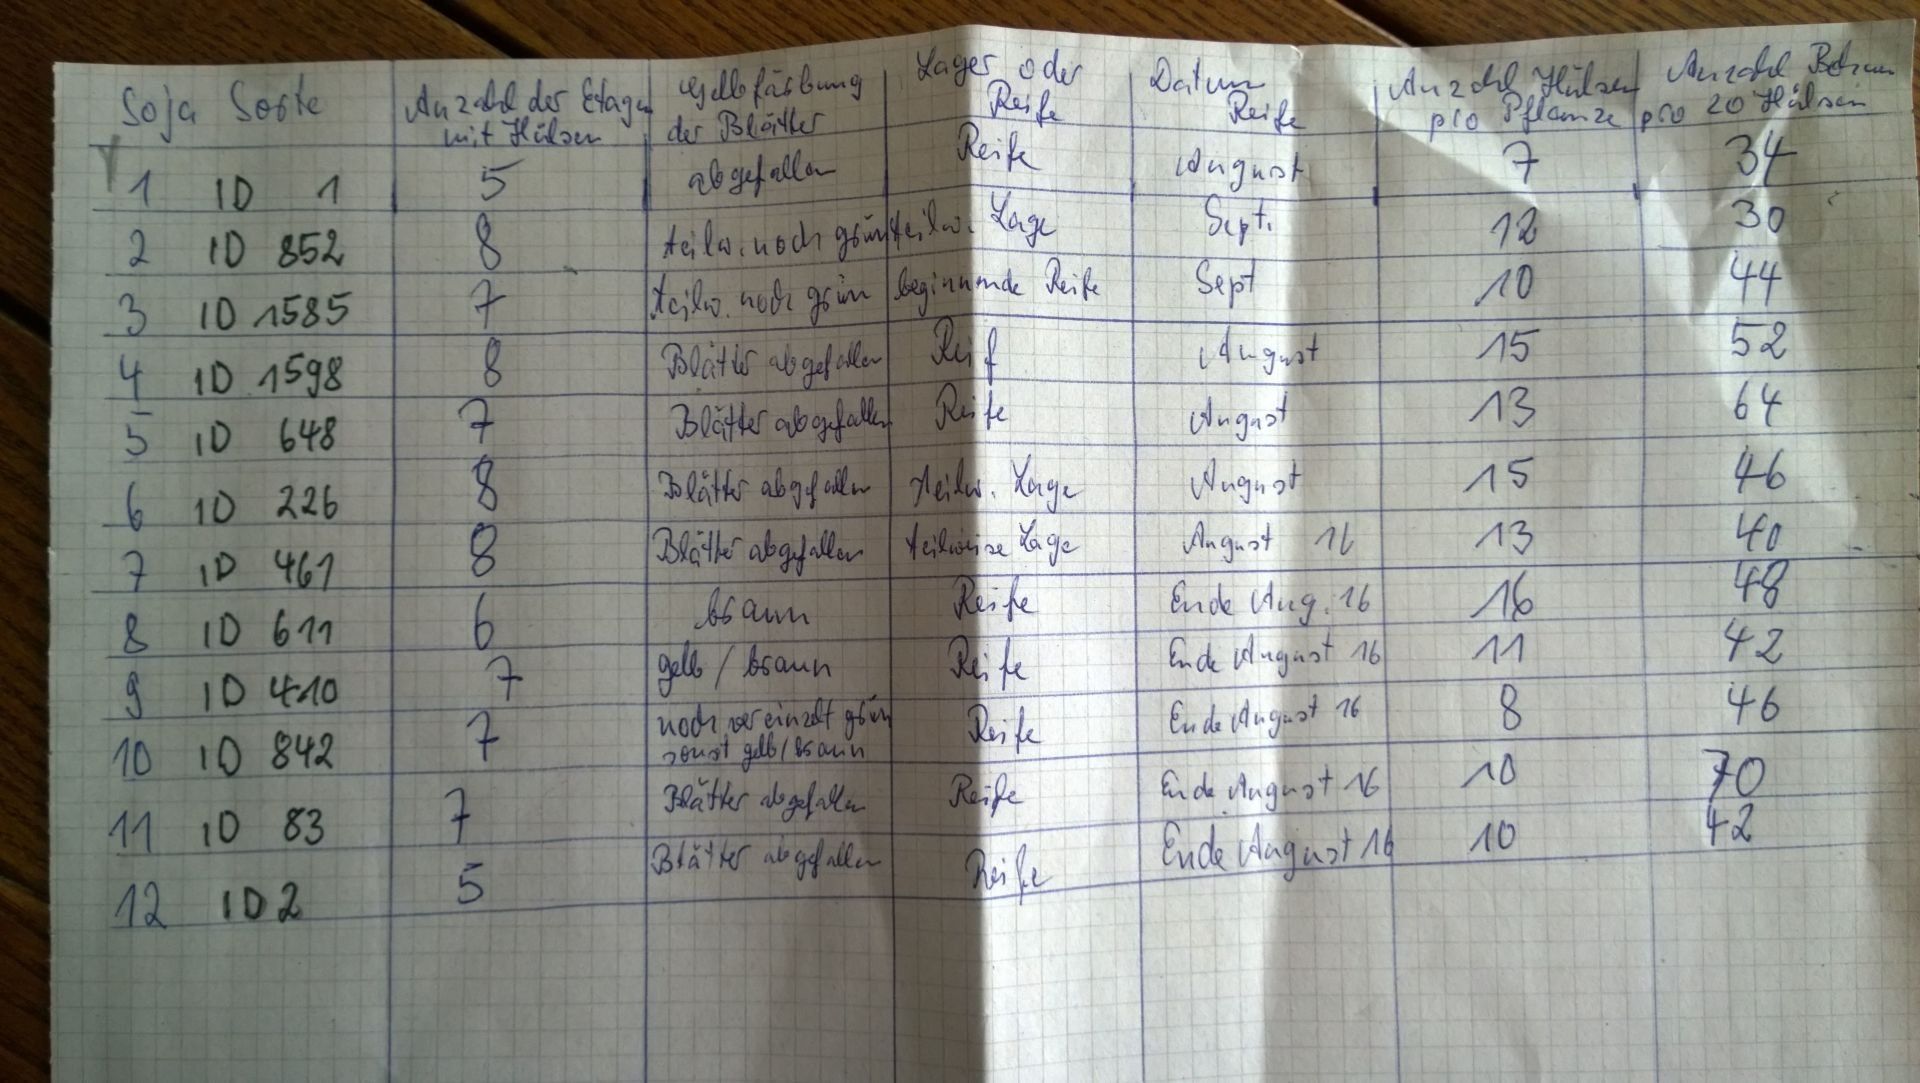 Soja Sorte | Anzahl der Etagen mit Hülsen | Gelbfärbung der Blätter | Lager oder Reife | Datum Reife | Anzahl Hülsen pro Pflanze | Anzahl Bohnen pro 20 Hülsen
1 ID 1 | 5 | abgefallen | Reife | August | 7 | 34
2 ID 852 | 8 | teilw. noch grün | teilw. Lage | Sept. | 12 | 30
3 ID 1585 | 7 | teilw. noch grün | beginnende Reife | Sept | 10 | 44
4 ID 1598 | 8 | Blätter abgefallen | Reif | August | 15 | 52
5 ID 648 | 7 | Blätter abgefallen | Reife | August | 13 | 64
6 ID 226 | 8 | Blätter abgefallen | teilw. Lage | August | 15 | 46
7 ID 461 | 8 | Blätter abgefallen | teilweise Lage | August 16 | 13 | 40
8 ID 611 | 6 | braun | Reife | Ende Aug. 16 | 16 | 48
9 ID 410 | 7 | gelb / braun | Reife | Ende August 16 | 11 | 42
10 ID 842 | 7 | noch vereinzelt grün sonst gelb/braun | Reife | Ende August 16 | 8 | 46
11 ID 83 | 7 | Blätter abgefallen | Reife | Ende August 16 | 10 | 70
12 ID 2 | 5 | Blätter abgefallen | Reife | Ende August 16 | 10 | 42